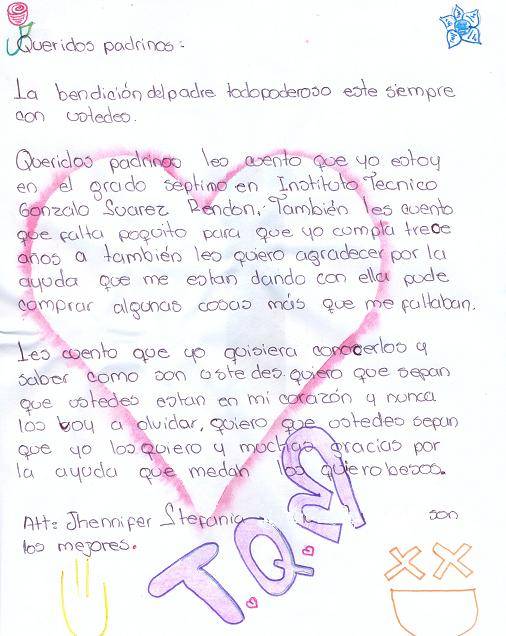 Queridos padrinos:
La bendición del padre todopoderoso este siempre
con ustedes.
Queridos padrinos les cuento que yo estoy
en el grado septimo en Instituto Tecnico
Gonzalo Suarez Rendon, También les cuento
que falta poquito para que yo cumpla trece
años a también les quiero agradecer por la
ayuda que me estan dando con ella pude
comprar algunas cosas más que me faltaban.
Les cuento que yo quisiera conocerlos y
saber como son ustedes. quiero que sepan
que ustedes estan en mi corazón y nunca
los boy a olvidar, quiero que ustedes sepan
que yo los quiero y muchas gracias por
la ayuda que medan los quiero besos.
Att: Jhennifer Stefania son
los mejores.
T.Q.M